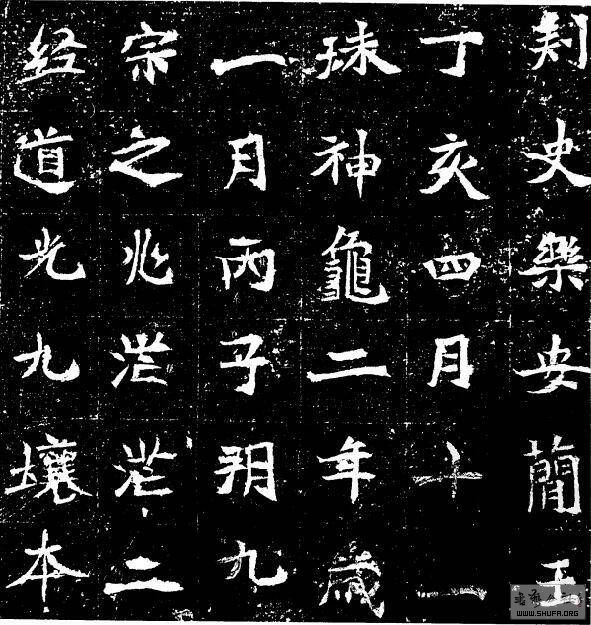 刺史樂安簡王
丁亥四月十一
珠神龜二年歲
一月丙子朔九
宗之兆茫茫二
经道光九壤本
WWW.SHUFA.ORG